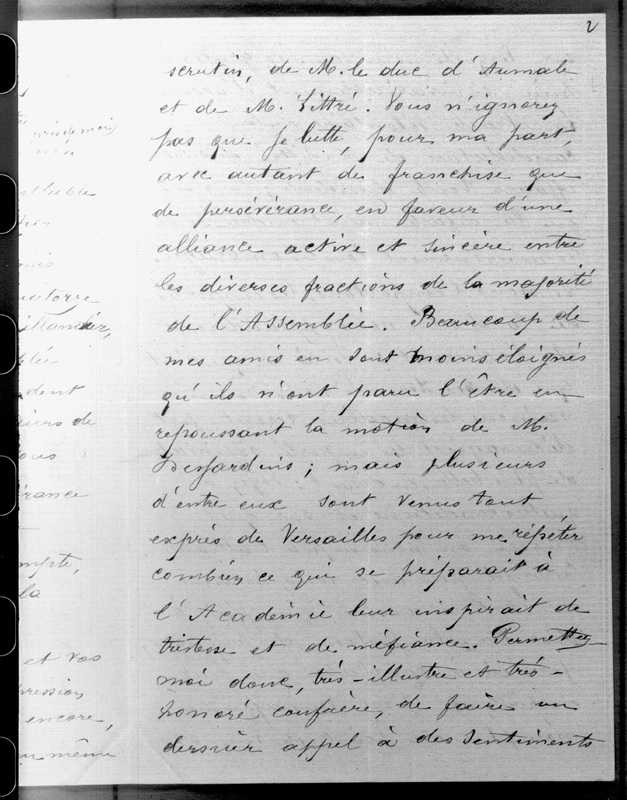 2
scrutin, de M. le duc d'Aumale
et de M. Littré. Vous n'ignorez
pas que je lutte, pour ma part,
avec autant de franchise que
de persévérance, en faveur d'une
alliance active et sincère entre
les diverses fractions de la majorité
de l'Assemblée. Beaucoup de
mes amis en sont moins éloignés
qu'ils n'ont paru l'être en
repoussant la motion de M.
Desjardins ; mais plusieurs
d'entre eux sont venus tout
exprès de Versailles pour me répéter
combien ce qui se préparait à
l'Académie leur inspirait de
tristesse et de méfiance. Permettez-
moi donc, très-illustre et très-
honoré confrère, de faire un
dernier appel à des sentiments
dent
ous
mpte,
la
et vos
pression
encore,
même